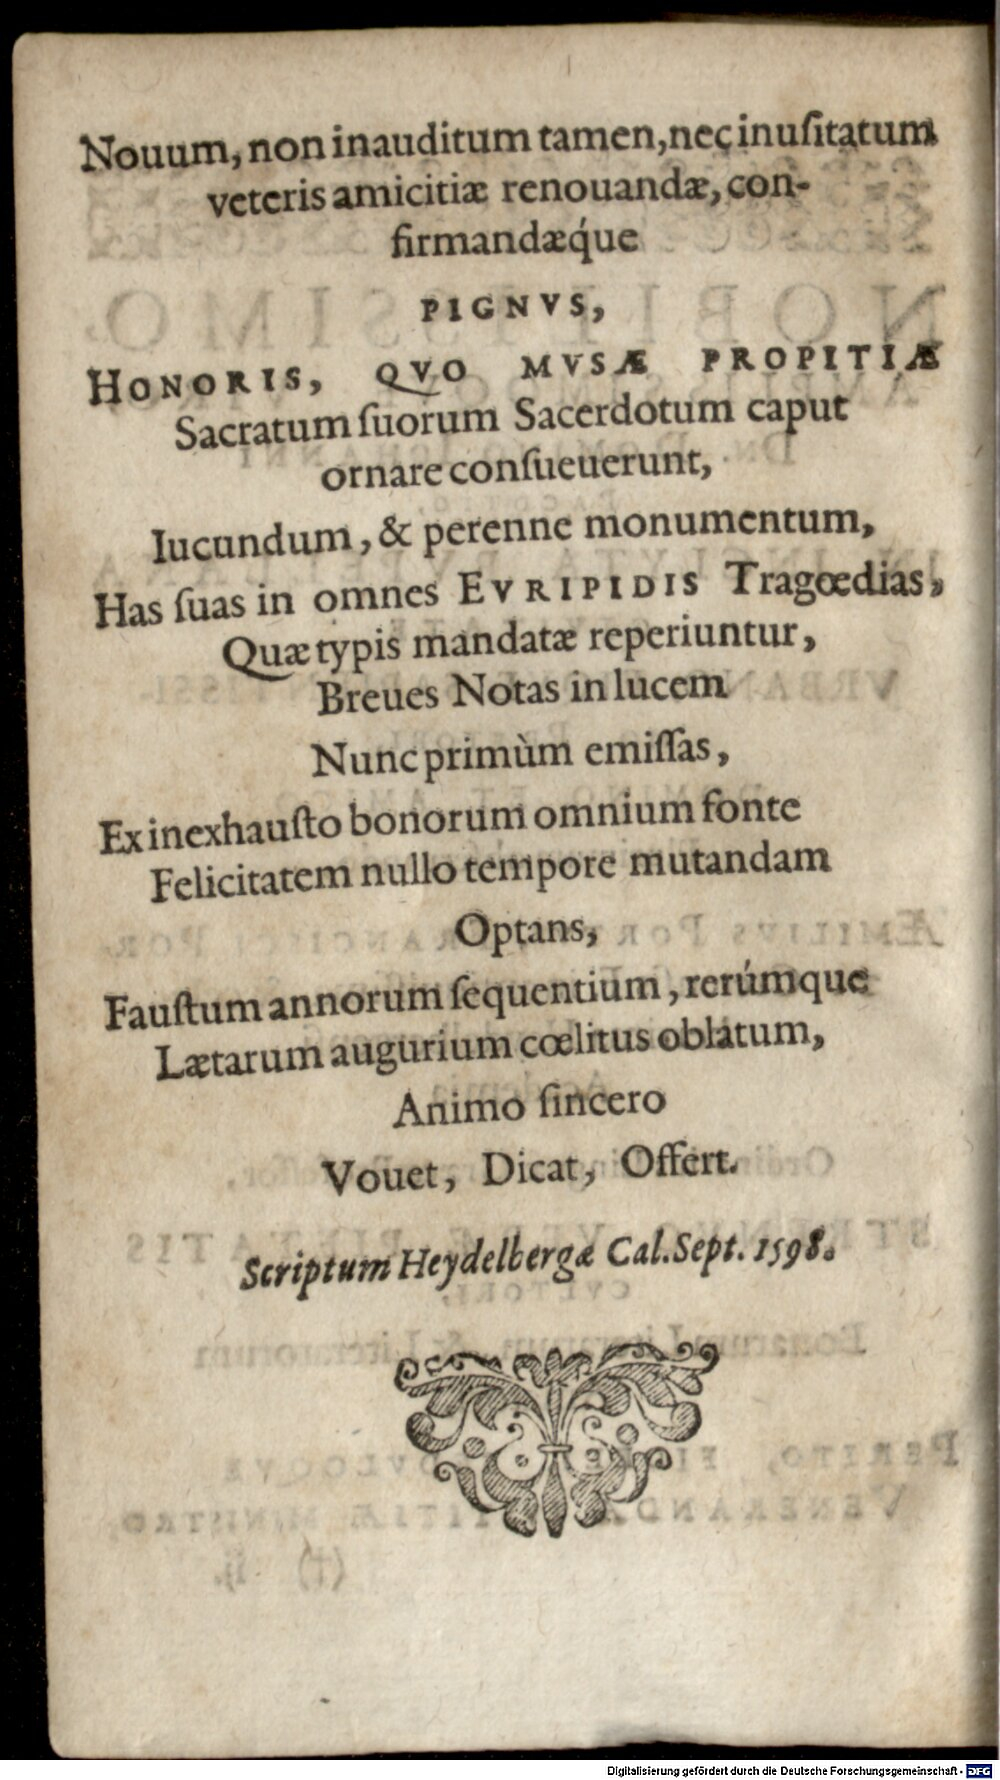 Nouum, non inauditum tamen, nec inuſitatum
veteris amicitiæ renouandæ, con-
firmandæq́ue
PIGNVS,
HONORIS, QVO MVSÆ PROPITIÆ
Sacratum ſuorum Sacerdotum caput
ornare conſueuerunt,
Iucundum, & perenne monumentum,
Has ſuas in omnes EVRIPIDIS Tragœdias,
Quæ typis mandatæ reperiuntur,
Breues Notas in lucem
Nunc primùm emiſſas,
Ex inexhauſto bonorum omnium fonte
Felicitatem nullo tempore mutandam
Optans,
Fauſtum annorum ſequentium, rerúmque
Lætarum augurium cœlitus oblatum,
Animo ſincero
Vouet, Dicat, Offert.
Scriptum Heydelbergæ Cal. Sept. 1598.
Digitalisierung gefördert durch die Deutsche Forschungsgemeinschaft - DFG